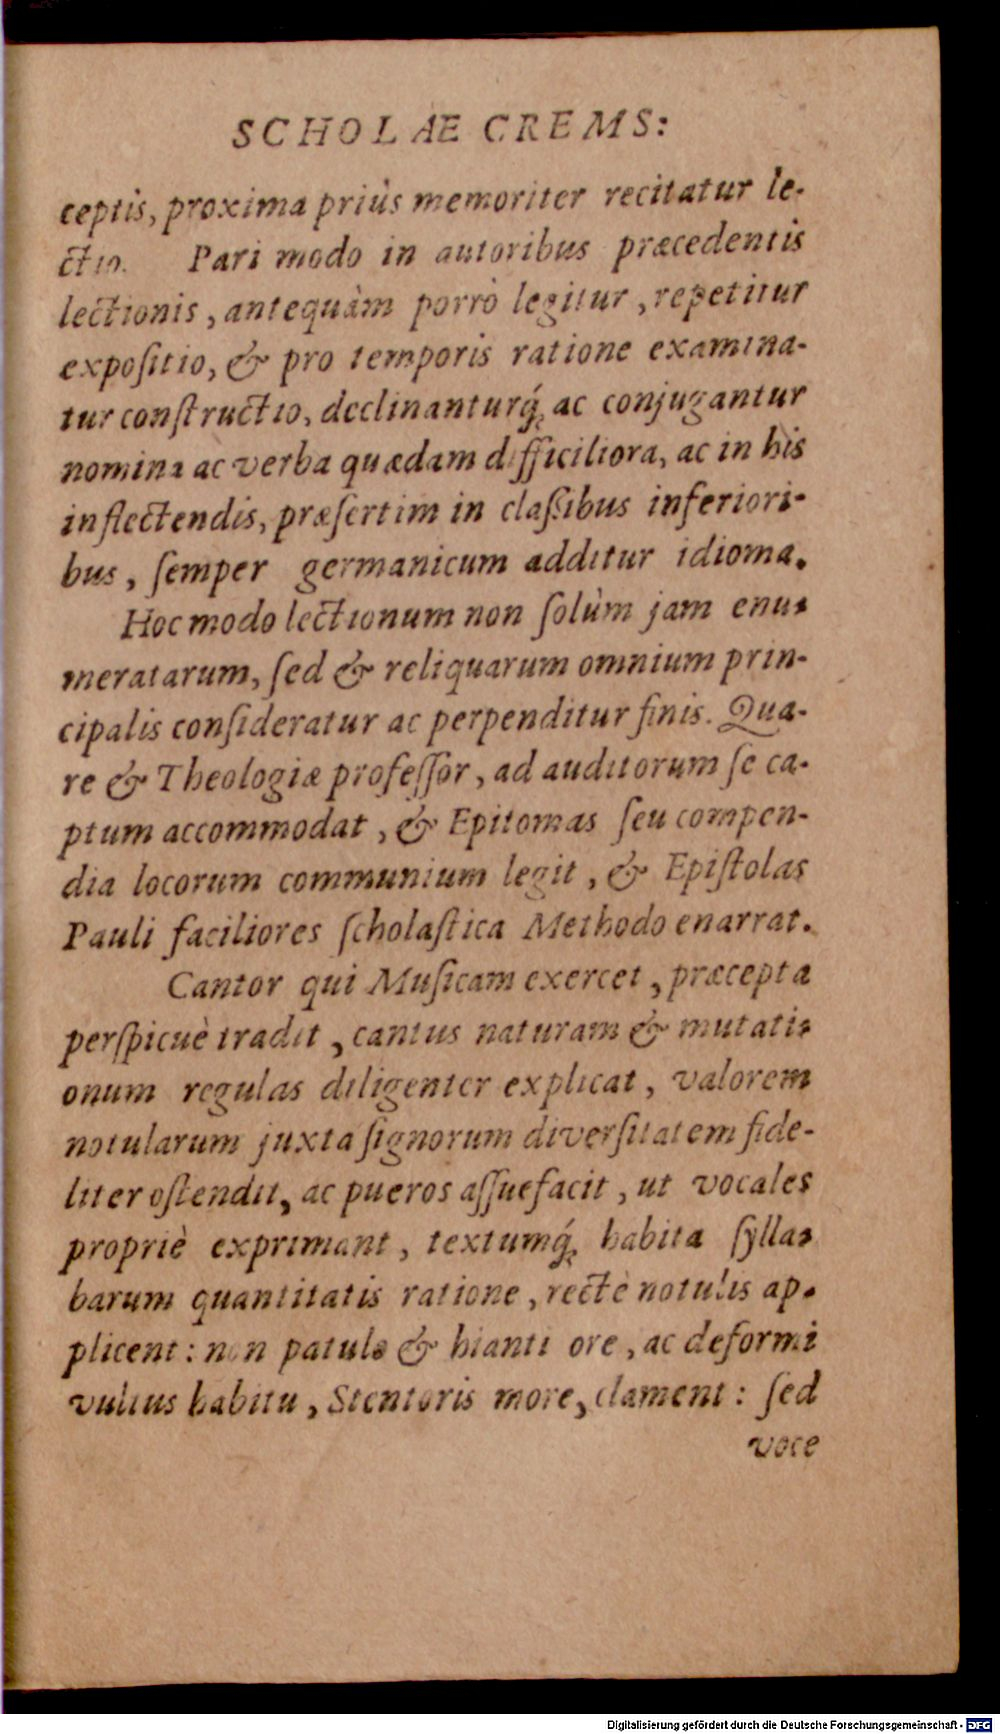 SCHOLÆ CREMS:
ceptis, proxima priùs memoriter recitatur le-
ctio. Pari modo in autoribus præcedentis
lectionis, antequàm porrò legitur, repetitur
expoſitio, & pro temporis ratione examina-
tur conſtructio, declinanturq́; ac conjugantur
nomina ac verba quædam difficiliora, ac in his
inflectendis, præſertim in claſſibus inferiori-
bus, ſemper germanicum additur idioma.
Hoc modo lectionum non ſolùm jam enu-
meratarum, ſed & reliquarum omnium prin-
cipalis conſideratur ac perpenditur finis. Qua-
re & Theologiæ profeſſor, ad auditorum ſe ca-
ptum accommodat, & Epitomas ſeu compen-
dia locorum communium legit, & Epiſtolas
Pauli faciliores ſcholaſtica Methodo enarrat.
Cantor qui Muſicam exercet, præcepta
perſpicuè tradit, cantus naturam & mutati-
onum regulas diligenter explicat, valorem
notularum juxta ſignorum diverſitatem fide-
liter oſtendit, ac pueros aſſuefacit, ut vocales
propriè exprimant, textumq́; habita ſylla-
barum quantitatis ratione, rectè notulis ap-
plicent: non patulo & hianti ore, ac deformi
vultus habitu, Stentoris more, clament: ſed
voce
Digitalisierung gefördert durch die Deutsche Forschungsgemeinschaft - DFG